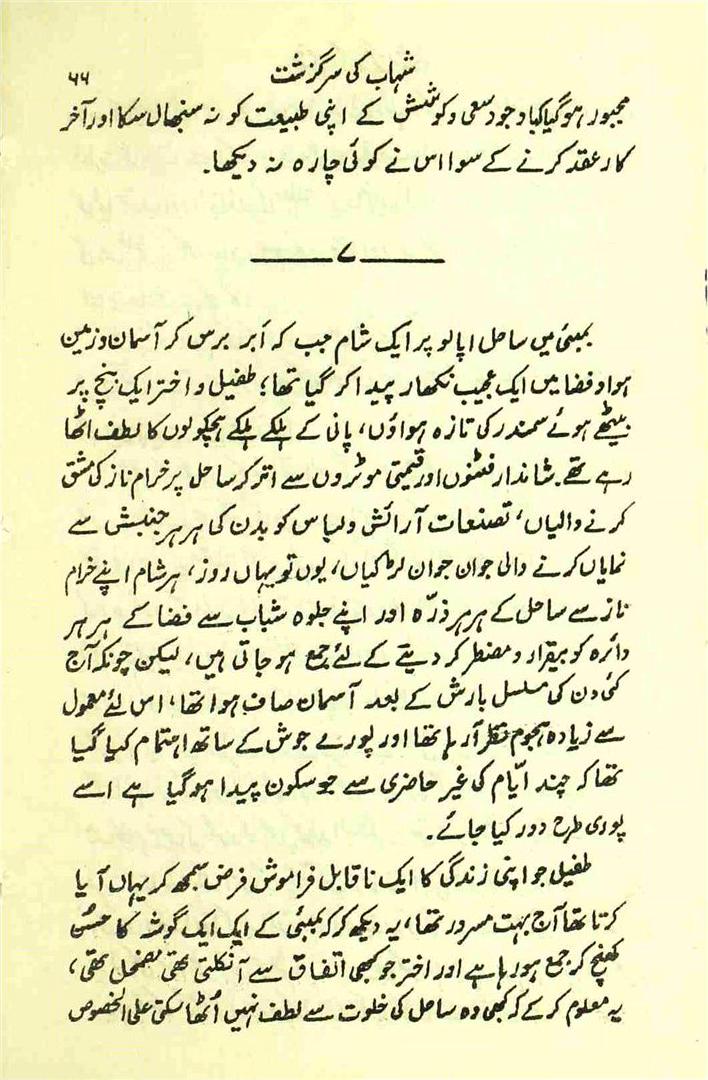 شہاب کی سرگزشت
۶۶
مجبور ہو گیا کہ باوجود سعی و کوشش کے اپنی طبیعت کو نہ سنبھال سکا اور آخر
کار عقد کرنے کے سوا اس نے کوئی چارہ نہ دیکھا.
۷
بمبئی میں ساحل اپالو پر ایک شام جب کہ اَبر برس کر آسمان و زمین
ہوا و فضا میں ایک عجیب نکھار پیدا کر گیا تھا؛ طفیل و اختر ایک بنچ پر
بیٹھے ہوئے سمندر کی تازہ ہواؤں، پانی کے ہلکے ہلکے ہچکولوں کا لطف اٹھا
رہے تھے. شاندار فٹنوں اور قیمتی موٹروں سے اتر کر ساحل پر خرام ناز کی مشق
کرنے والیاں، تصنعات آرائش و لباس کو بدن کی ہر ہر جنبش سے
نمایاں کرنے والی جوان جوان لڑکیاں، یوں تو یہاں روز، ہر شام اپنے خرام
ناز سے ساحل کے ہر ہر ذرّہ اور اپنے جلوہ شباب سے فضا کے ہر ہر
دائرہ کو بیقرار و مضطر کر دینے کے لئے جمع ہو جاتی ہیں، لیکن چونکہ آج
کئی دن کی مسلسل بارش کے بعد آسمان صاف ہوا تھا، اس لئے معمول
سے زیادہ ہجوم نظر آ رہا تھا اور پورے جوش کے ساتھ اہتمام کیا گیا
تھا کہ چند ایّام کی غیر حاضری سے جو سکون پیدا ہو گیا ہے اسے
پوری طرح دور کیا جائے.
طفیل جو اپنی زندگی کا ایک ناقابل فراموش فرض سمجھ کر یہاں آیا
کرتا تھا آج بہت مسرور تھا، یہ دیکھ کر کہ بمبئی کے ایک ایک گوشہ کا حسن
کھنچ کر جمع ہو رہا ہے اور اختر جو کبھی اتفاق سے آ نکلتی تھی مضمحل تھی،
یہ معلوم کر کے کہ کبھی وہ ساحل کی خلوت سے لطف نہیں اُٹھا سکتی علی الخصوص